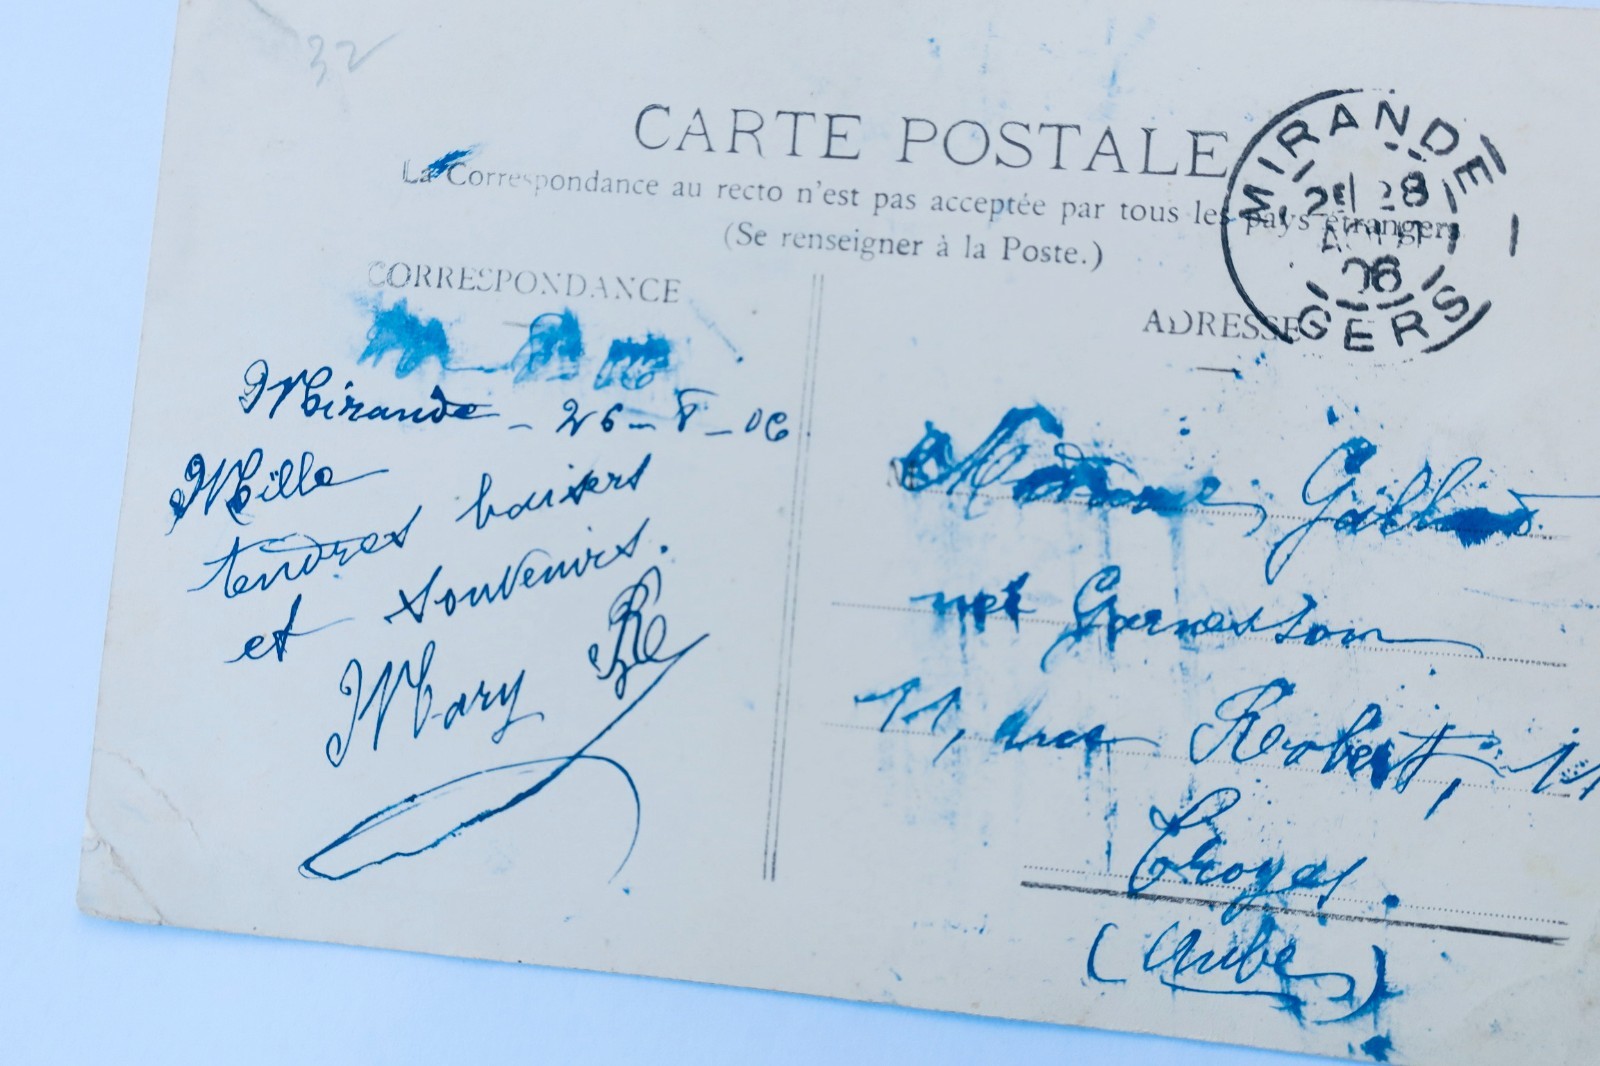 32
CARTE POSTALE
La Correspondance au recto n'est pas acceptée par tous les pays étrangers
(Se renseigner à la Poste.)
CORRESPONDANCE
Mirande - 26 - 8 - 06
Mille
tendres baisers
et souvenirs.
Mary
MIRANDE
28
06
GERS
ADRESSE
Madame
née
11, rue Robert, 11
Troyes.
(Aube)